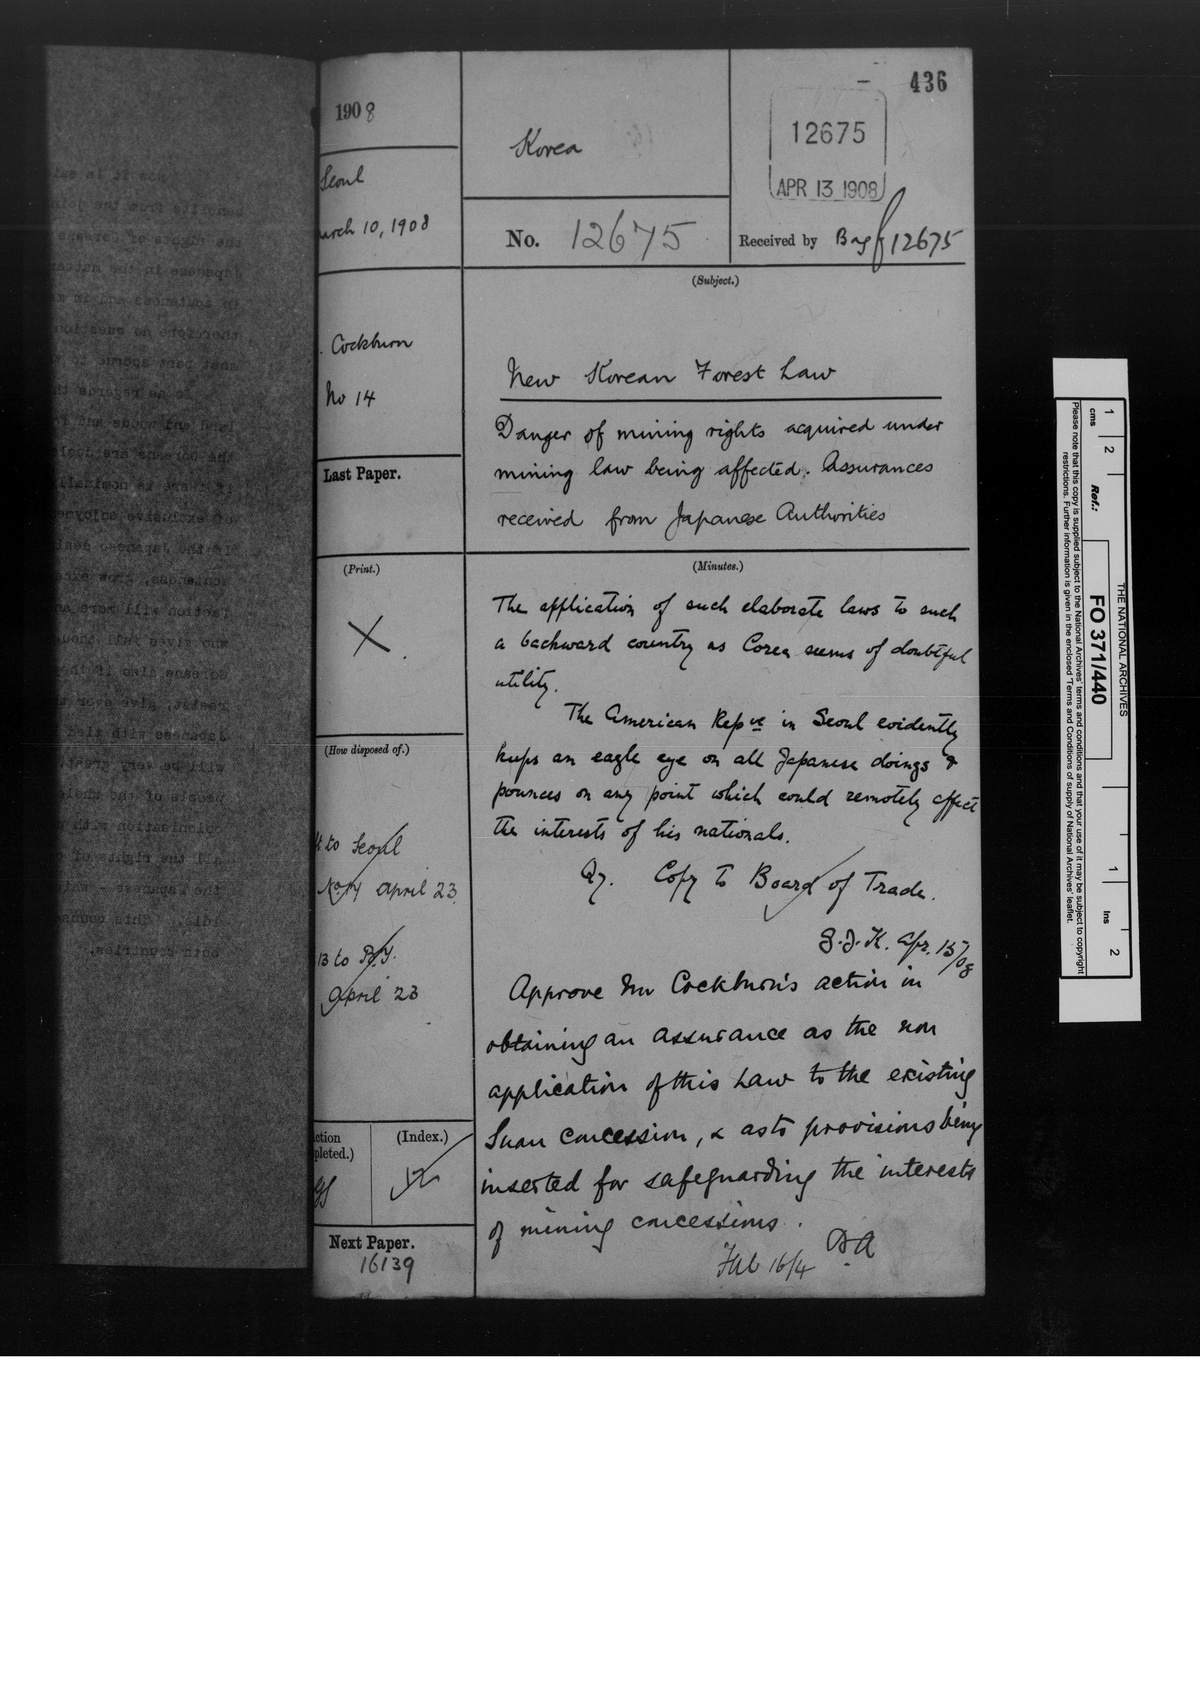 436
1908
Korea
12675
APR 13 1908
Seoul
March 10, 1908
No. 12675
Received by Bag 12675
(Subject.)
. Cockburn
No 14
New Korean Forest Law
Danger of mining rights acquired under
mining law being affected. Assurances
received from Japanese Authorities
Last Paper.
(Print.)
X
(Minutes.)
The application of such elaborate laws to such
a backward country as Corea seems of doubtful
utility.
The American Repve in Seoul evidently
keeps an eagle eye on all Japanese doings &
pounces on any point which could remotely affect
the interests of his nationals.
Qy. Copy to Board of Trade.
Apr. 15/08
Approve Mr Cockburn's action in
obtaining an assurance as the non
application of this Law to the existing
Suan concession, & as to provisions being
inserted for safeguarding the interests
of mining concessions.
16/4
(How disposed of.)
to Seoul
April 23
13 to B.T.
April 23
ction
pleted.)
(Index.)
Next Paper.
16139
THE NATIONAL ARCHIVES
Ref.: FO 371/440
1 2
cms
1 2
ins
Please note that this copy is supplied subject to the National Archives' terms and conditions and that your use of it may be subject to copyright
restrictions. Further information is given in the enclosed 'Terms and Conditions of supply of National Archives' leaflet.